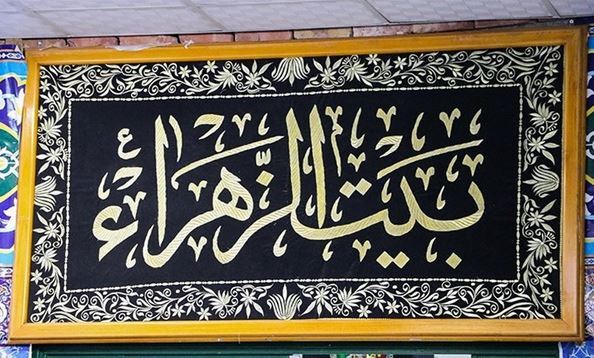 بيت الزهراء